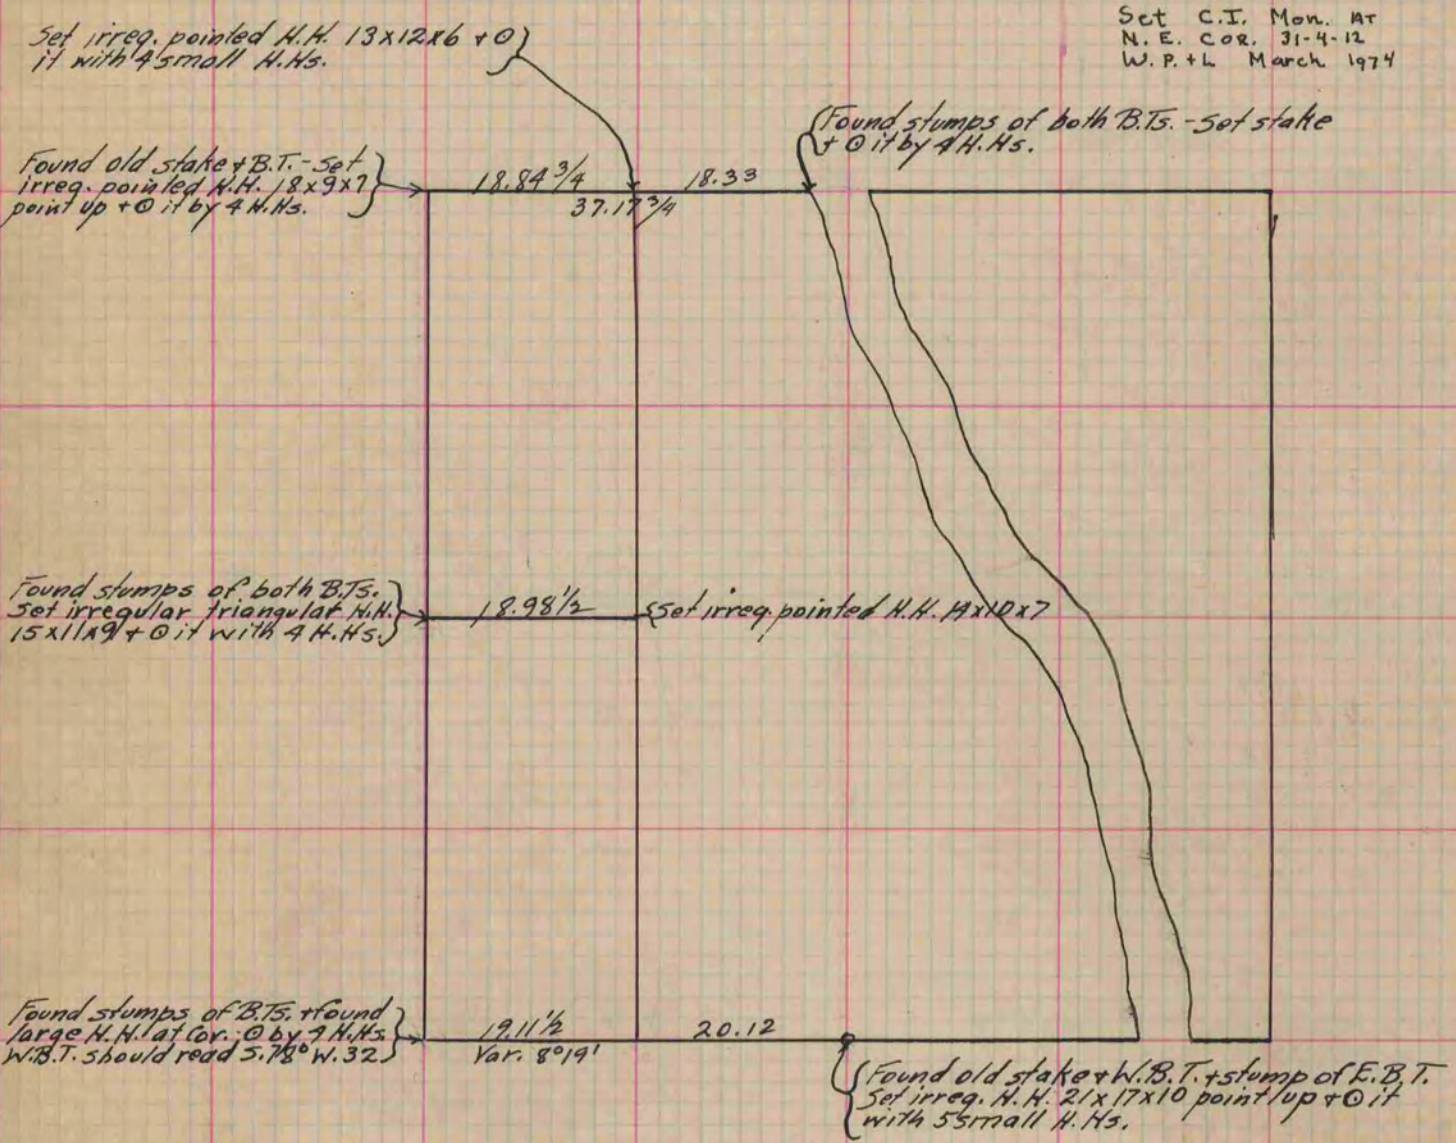 Set irreg. pointed H.H. 13x12x6 + ⊙
it with 4 small H.Hs.
Set C.I. Mon. AT
N.E. COR. 31-4-12
W.P.+L March 1974
Found stumps of both B.Ts. - Set stake
+ ⊙ it by 4 H.Hs.
Found old stake + B.T. - Set
irreg. pointed H.H. 18x9x7
point up + ⊙ it by 4 H.Hs.
18.84 3/4
18.33
37.17 3/4
Found stumps of both B.Ts.
Set irregular triangular H.H.
15x11x9 + ⊙ it with 4 H.Hs.
18.98 1/2
Set irreg. pointed H.H. 14x10x7
Found stumps of B.Ts. + found
large H.H. at Cor. ⊙ by 4 H.Hs.
W.B.T. should read S.78° W.32
19.11 1/2
Var. 8°19'
20.12
Found old stake + W.B.T. + stump of E.B.T.
Set irreg. H.H. 21x17x10 point up + ⊙ it
with 5 small H.Hs.